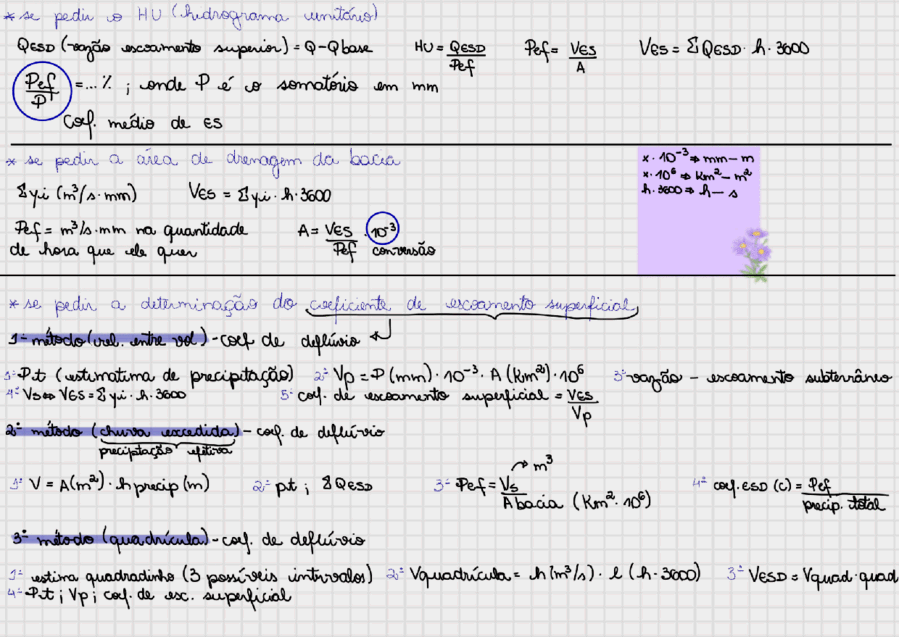 * se pedir o HU (hidrograma unitário)
QESD (vazão escoamento superior) = Q - Qbase HU = QESD/Pef Pef = VES/A VES = ΣQESD · h · 3600
Pef/P = ...% ; onde P é o somatório em mm
Coef. médio de ES
* se pedir a área de drenagem da bacia
x · 10⁻³ ⇒ mm - m
x · 10⁶ ⇒ Km² - m²
h · 3600 ⇒ h - s
Σyi (m³/s · mm) VES = Σyi · h · 3600
Pef = m³/s · mm na quantidade
de hora que ele quer
A = VES/Pef · 10⁻³
conversão
* se pedir a determinação do coeficiente de escoamento superficial
1º método (rel. entre vol) - coef de deflúvio
1º P.t (estimatima de precipitação) 2º Vp = P (mm) · 10⁻³ · A (Km²) · 10⁶ 3º vazão - escoamento subterrâneo
4º Vs ⇔ VES = Σyi · h · 3600 5º coef. de escoamento superficial = VES/Vp
2º método (chuva excedida) - coef. de deflúvio
precipitação efetiva
1º V = A(m²) · h precip (m) 2º pt ; ΣQESD 3º Pef = Vs/A bacia (Km² · 10⁶) → m³ 4º coef. ESD (C) = Pef/precip. total
3º método (quadrícula) - coef. de deflúvio
1º estima quadradinho (3 possíveis intervalos) 2º Vquadrícula = h (m³/s) · l (h · 3600) 3º VESD = Vquad · quad
4º P.t ; Vp ; coef. de esc. superficial